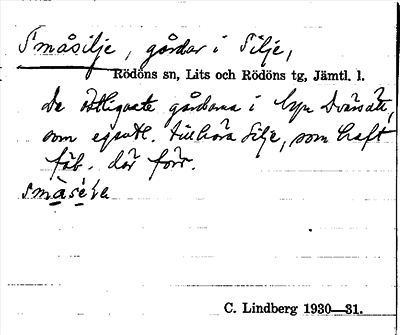 Småsilje, gårdar i Silje,
Rödöns sn, Lits och Rödöns tg, Jämtl. l.
De östligaste gårdarna i byn Dvärsätt,
som egentl. tillhöra Silje, som haft
fäb. där förr.
C. Lindberg 1930—31.